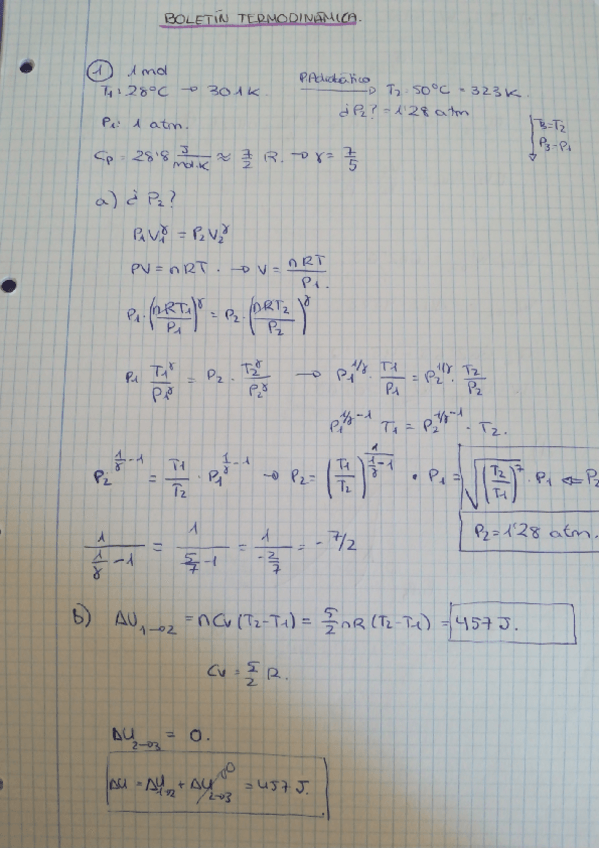 BOLETÍN TERMODINÁMICA.
① 1 mol
T₁: 28ºC → 301K. P. Adiabático → T₂: 50ºC = 323K.
¿P₂? = 1'28 atm
P₁: 1 atm. T₃=T₂
P₃=P₁
Cp = 28'8 J/mol·K ≈ 7/2 R. → γ = 7/5
a) ¿P₂?
P₁V₁^γ = P₂V₂^γ
PV = nRT. → V = nRT/P₁.
P₁·(nRT₁/P₁)^γ = P₂·(nRT₂/P₂)^γ
P₁ T₁^γ/P₁^γ = P₂ · T₂^γ/P₂^γ → P₁^(1/γ) · T₁/P₁ = P₂^(1/γ) · T₂/P₂
P₁^(1/γ-1) T₁ = P₂^(1/γ-1) · T₂.
P₂^(1/γ-1) = T₁/T₂ · P₁^(1/γ-1) → P₂ = (T₁/T₂)^(1/(1/γ-1)) · P₁ = √((T₂/T₁)^7) · P₁ ⇐ P₂
P₂ = 1'28 atm.
1/(1/γ-1) = 1/(5/7-1) = 1/(-2/7) = -7/2
b) ΔU₁→₂ = nCv(T₂-T₁) = 5/2 nR(T₂-T₁) = 457 J.
Cv = 5/2 R.
ΔU₂→₃ = 0.
ΔU = ΔU₁→₂ + ΔU₂→₃ 0 = 457 J.